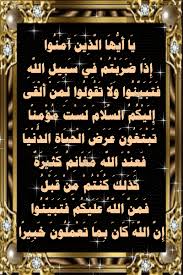 يَا أيهَا الذين آمنُوا
إذَا ضَرَبْتُم في سَبيل الله
فتبَيّنُوا ولا تقُولُوا لمن ألقى
إليْكُم السلام لسْتَ مُؤمنًا
تبْتغُون عرضَ الحيَاة الدُّنْيَا
فعند الله مغَانم كثيرَةٌ
كذَلك كُنْتُم من قَبْلُ
فمَنّ الله عليْكُم فتبَيّنُوا
إنّ الله كانَ بمَا تعمَلُون خَبيرًا